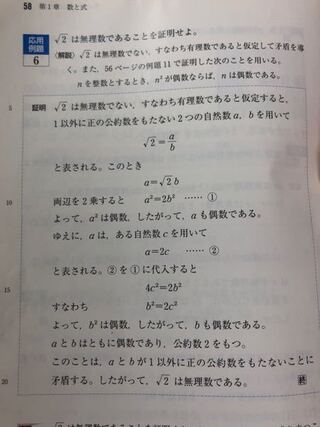 58 第1章 数と式
応用例題 6
√2 は無理数であることを証明せよ。
(解説) √2 は無理数でない，すなわち有理数であると仮定して矛盾を導
く。また，56ページの例題11で証明した次のことを用いる。
nを整数とするとき，n²が偶数ならば，nは偶数である。
5 証明 √2 は無理数でない，すなわち有理数であると仮定すると，
1以外に正の公約数をもたない2つの自然数a，bを用いて
√2 = a/b
と表される。このとき
a=√2 b
10 両辺を2乗すると a²=2b² …… ①
よって，a²は偶数，したがって，aも偶数である。
ゆえに，aは，ある自然数cを用いて
a=2c …… ②
と表される。②を①に代入すると
15 4c²=2b²
すなわち b²=2c²
よって，b²は偶数，したがって，bも偶数である。
aとbはともに偶数であり，公約数2をもつ。
このことは，aとbが1以外に正の公約数をもたないことに
20 矛盾する。したがって，√2 は無理数である。 終